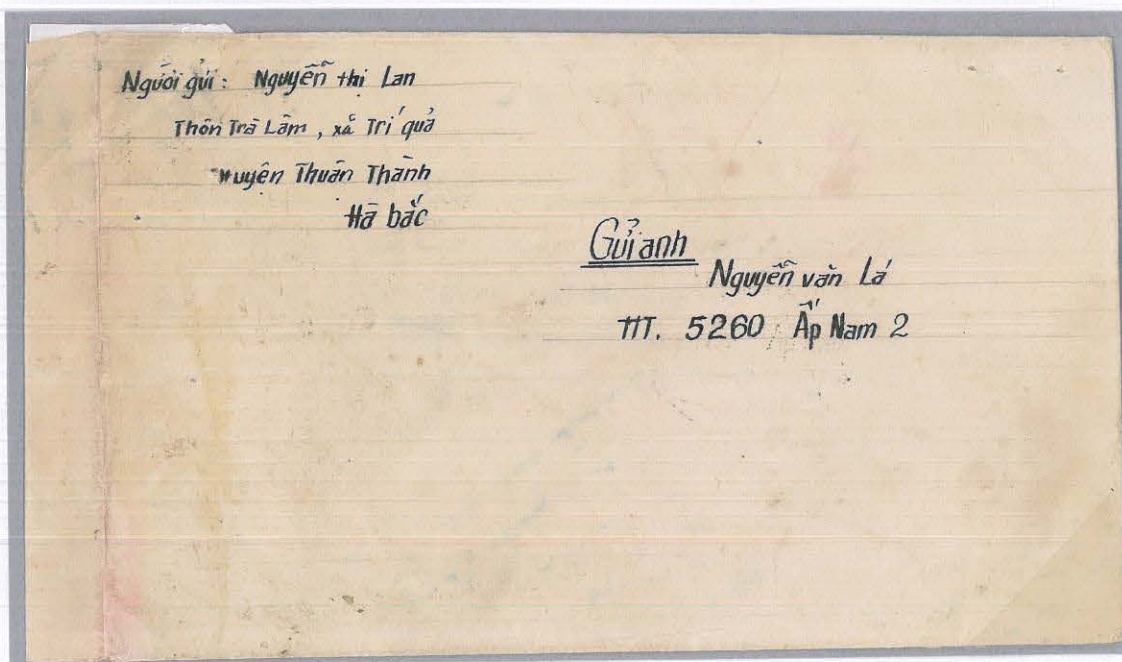 Người gửi: Nguyễn thị Lan
Thôn Trà Lâm, xã Trí quả
Huyện Thuận Thành
Hà bắc
Gửi anh
Nguyễn văn Lá
TTT. 5260 Ấp Nam 2